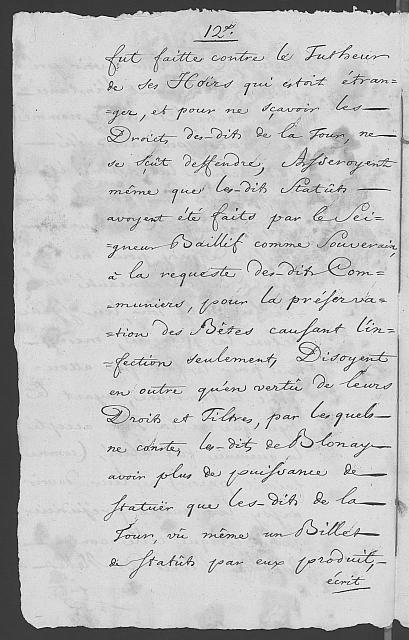 12.e
fut faitte contre le Tutheur
de ses Hoirs qui étoit étran-
=ger, et pour ne sçavoir les
Droict, des-dits de la Tour, ne
se sçût deffendre, Asseroyent
même que les-dits Statûts
avoyent été faits par le Sei-
=gneur Baillif comme Souverain,
à la requeste des-dits Com-
=muniers, pour la préserva-
=tion des Bêtes causant l'in-
=fection seulement, Disoyent
en outre qu'en vertû de leurs
Droits et Tiltres, par lesquels
ne conste, les-dits de Blonay
avoir plus de puissance de
statuër que les-dits de la
Tour, vû même un Billet
de Statûts par eux produit,
écrit